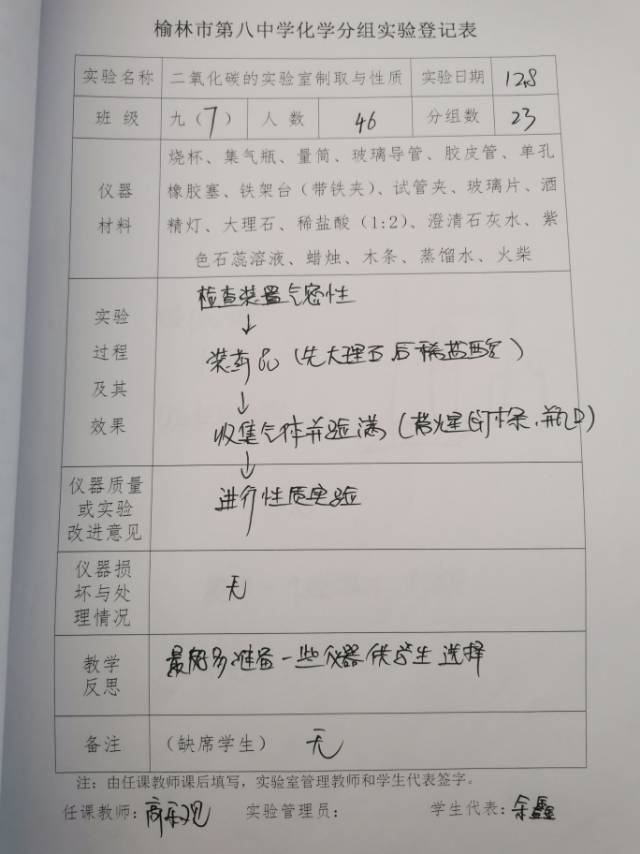 榆林市第八中学化学分组实验登记表
实验名称 二氧化碳的实验室制取与性质 实验日期 12.8
班 级 九（7） 人 数 46 分组数 23
仪器材料 烧杯、集气瓶、量筒、玻璃导管、胶皮管、单孔
橡胶塞、铁架台（带铁夹）、试管夹、玻璃片、酒
精灯、大理石、稀盐酸（1:2）、澄清石灰水、紫
色石蕊溶液、蜡烛、木条、蒸馏水、火柴
实验
过程
及其
效果
检查装置气密性
↓
装药品（先大理石后稀盐酸）
↓
收集气体并验满（带火星的木条、瓶口）
↓
仪器质量
或实验
改进意见
进行性质实验
仪器损
坏与处
理情况
无
教学
反思
最好多准备一些仪器供学生选择
备注 （缺席学生） 无
注：由任课教师课后填写，实验室管理教师和学生代表签字。
任课教师： 实验管理员： 学生代表：余鑫